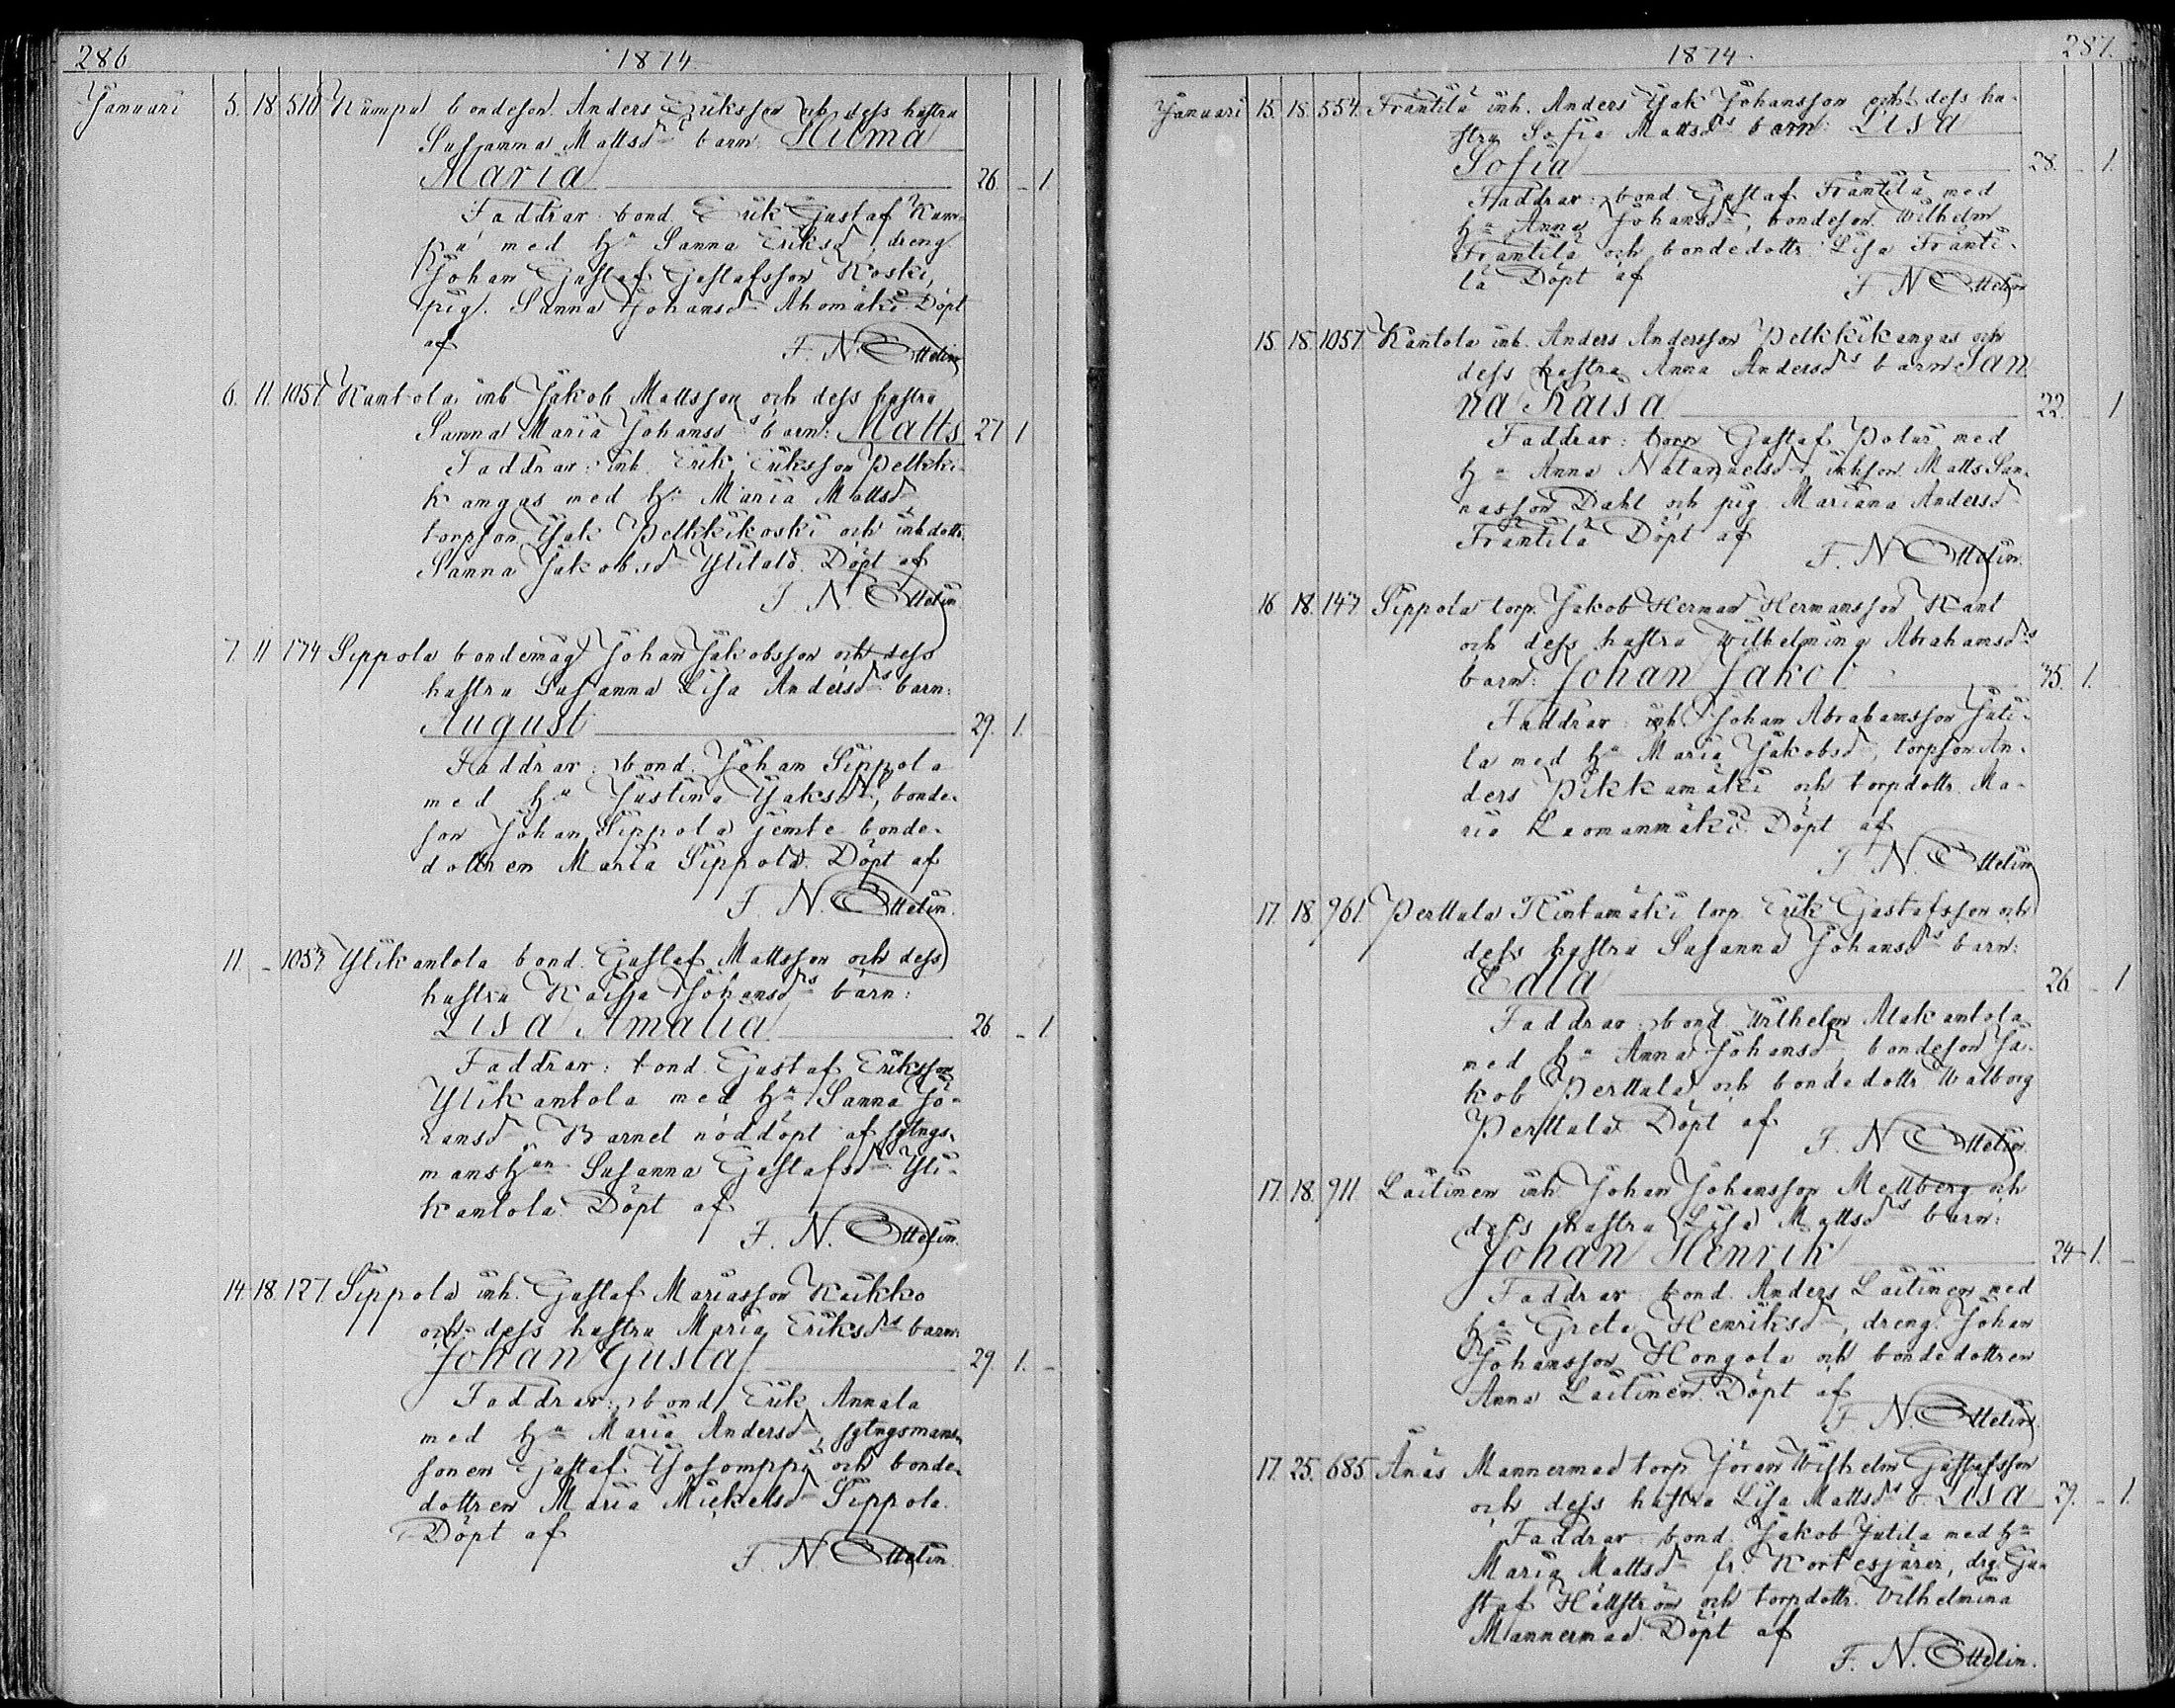 286
1874
Januari 5. 18. 510 Kumpu bondeson Anders Eriksson och dess hustru
Susanna Mattsd:rs barn: Hilma
Maria 26. - 1
Faddrar: bond. Erik Gustaf Kum-
pu med h:u Sanna Eriksd:r, dreng
Johan Gustaf Gustafsson Koski,
pig. Sanna Johansd:r Ahomäki. Döpt
af F. N. Ottelin
6. 11. 1057. Kantola inh. Jakob Mattsson och dess hustru
Sanna Maria Johansd:rs barn: Matts 27 1
Faddrar: inh. Erik Eriksson Pelkki-
kangas med h:u Maria Mattsd:r
torpson Jak Pelkkikoski och inhdottr.
Sanna Jakobsd:r Ylitalo. Döpt af
F. N. Ottelin
7. 11 174 Sippola bondemåg Johan Jakobsson och dess
hustru Susanna Lisa Andersd:rs barn:
August 29. 1.
Faddrar: bond. Johan Sippola
med h:u Justina Jaksd:r, bonde-
son Johan Sippola jemte bonde-
dottren Maria Sippola. Döpt af
F. N. Ottelin.
11. - 1053 Ylikantola bond. Gustaf Mattsson och dess
hustru Kaisa Johansd:rs barn:
Lisa Amalia 26 - 1
Faddrar: bond. Gustaf Eriksson
Ylikantola med h:u Sanna Jo-
hansd:r. Barnet nöddöpt af sytngs-
mansh:an Susanna Gustafsd:r Yli-
kantola. Döpt af
F. N. Ottelin.
14. 18. 127. Sippola inh. Gustaf Mariasson Kaikko
och dess hustru Maria Eriksd:rs barn:
Johan Gustaf 29. 1. -
Faddrar: bond. Erik Annala
med h:u Maria Andersd:r, sytngsmans-
sonen Gustaf Isosomppi och bonde-
dottren Maria Mickelsd:r Sippola.
Döpt af
F. N. Ottelin.
1874.
287.
Januari 15. 18. 554. Främtilä inh. Anders Jak Johansson och dess hu-
stru Sofia Mattsd:rs barn: Lisa
Sofia 28. - 1.
Faddrar: bond. Gustaf Främtilä med
h:u Anna Johansd:r, bondeson Wilhelm
Främtilä och bondedottr. Lisa Främti-
lä Döpt af F. N. Ottelin
15. 18. 1057. Kantola inh. Anders Andersson Pelkkikangas och
dess hustru Anna Andersd:rs barn San
na Kaisa 22. - 1
Faddrar: torp Gustaf Polus med
h:u Anna Natanaelsd:r, inhson Matts San-
nasson Dahl och pig. Mariana Andersd:r
Främtilä Döpt af
F. N. Ottelin.
16 18. 147. Sippola torp. Jakob Herman Hermansson Kant
och dess hustru Wilhelmina Abrahamsd:rs
barn: Johan Jakob 35. 1.
Faddrar: inh Johan Abrahamsson Juti-
la med h:u Maria Jakobsd:r, torpson An-
ders Pikkamäki och torpdottr. Ma-
ria Laomanmäki. Döpt af
F. N. Ottelin
17. 18. 961. Perttula Rintamäki torp. Erik Gustafsson och
dess hustru Susanna Johansd:rs barn:
Edla 26 - 1
Faddrar: bond. Wilhelm Alakantola
med h:u Anna Johansd:r, bondeson Ja-
kob Perttula och bondedottr. Walborg
Perttula. Döpt af
F. N. Ottelin.
17. 18. 911. Laitinen inh. Johan Johansson Mettberg och
dess hustru Lisa Mattsd:rs barn:
Johan Henrik 24 1. -
Faddrar: bond. Anders Laitinen med
h:u Greta Henriksd:r, dreng. Johan
Johansson Hongola och bondedottren
Anna Laitinen. Döpt af
F. N. Ottelin
17. 25. 685. Ånäs Mannermad torp Jöran Wilhelm Gustafsson
och dess hustru Lisa Mattsd:rs b. Lisa 29. - 1.
Faddrar: bond. Jakob Jutila med h:u
Maria Mattsd:r fr. Kortesjärvi, drg Gu-
staf Hällström och torpdottr. Vilhelmina
Mannermad. Döpt af
F. N. Ottelin.